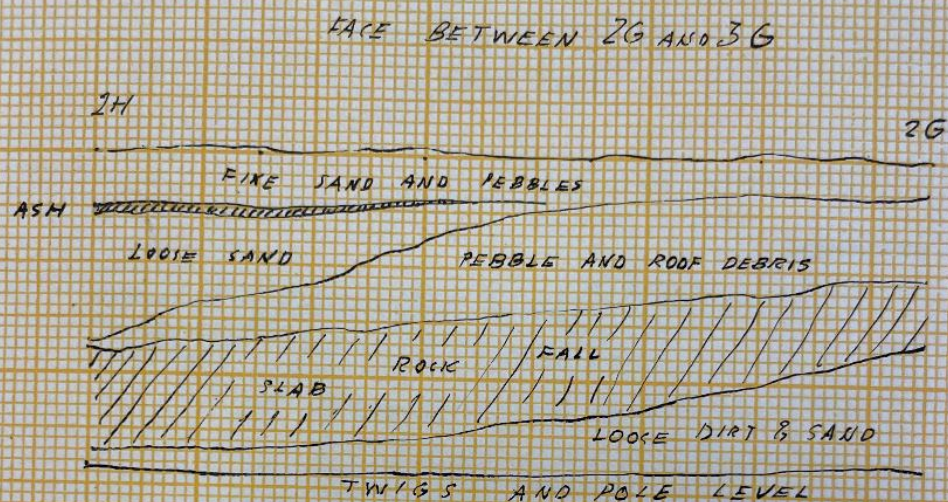 FACE BETWEEN 2G AND 3G
2H
2G
FINE SAND AND PEBBLES
ASH
LOOSE SAND
PEBBLE AND ROOF DEBRIS
SLAB ROCK FALL
LOOSE DIRT & SAND
TWIGS AND POLE LEVEL